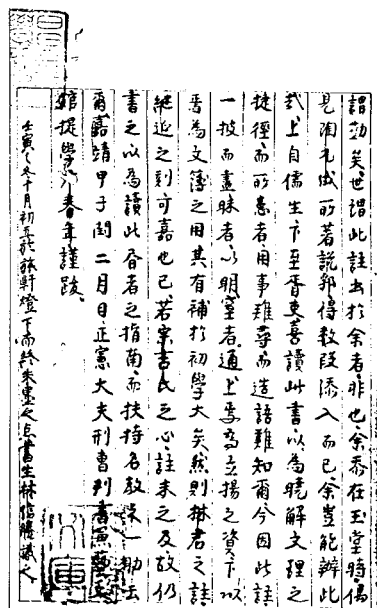 謂勤矣世謂此註出於余者非也余忝在玉堂時偶
見陶九成所著說郛得數段添入而已余豈能辦此
哉上自儒生下至胥吏喜讀此書以為曉解文理之
捷徑而所患者用事難尋而造語難知爾今因此註
一披而盡昧者以明窒者通上焉為立揚之資下以
焉為文簿之用其有補於初學大矣然則君之註
継延之刻可嘉也已若宋吉氏之心註未之及故仍
書之以為讀此者之指南而扶持名教深一助云
爾嘉靖甲子閏二月日正憲大夫刑曹判書兼藝文
館提學尹春年謹跋
壬寅之冬十月初五於旅軒燈下而終朱墨之点書生林信勝識之